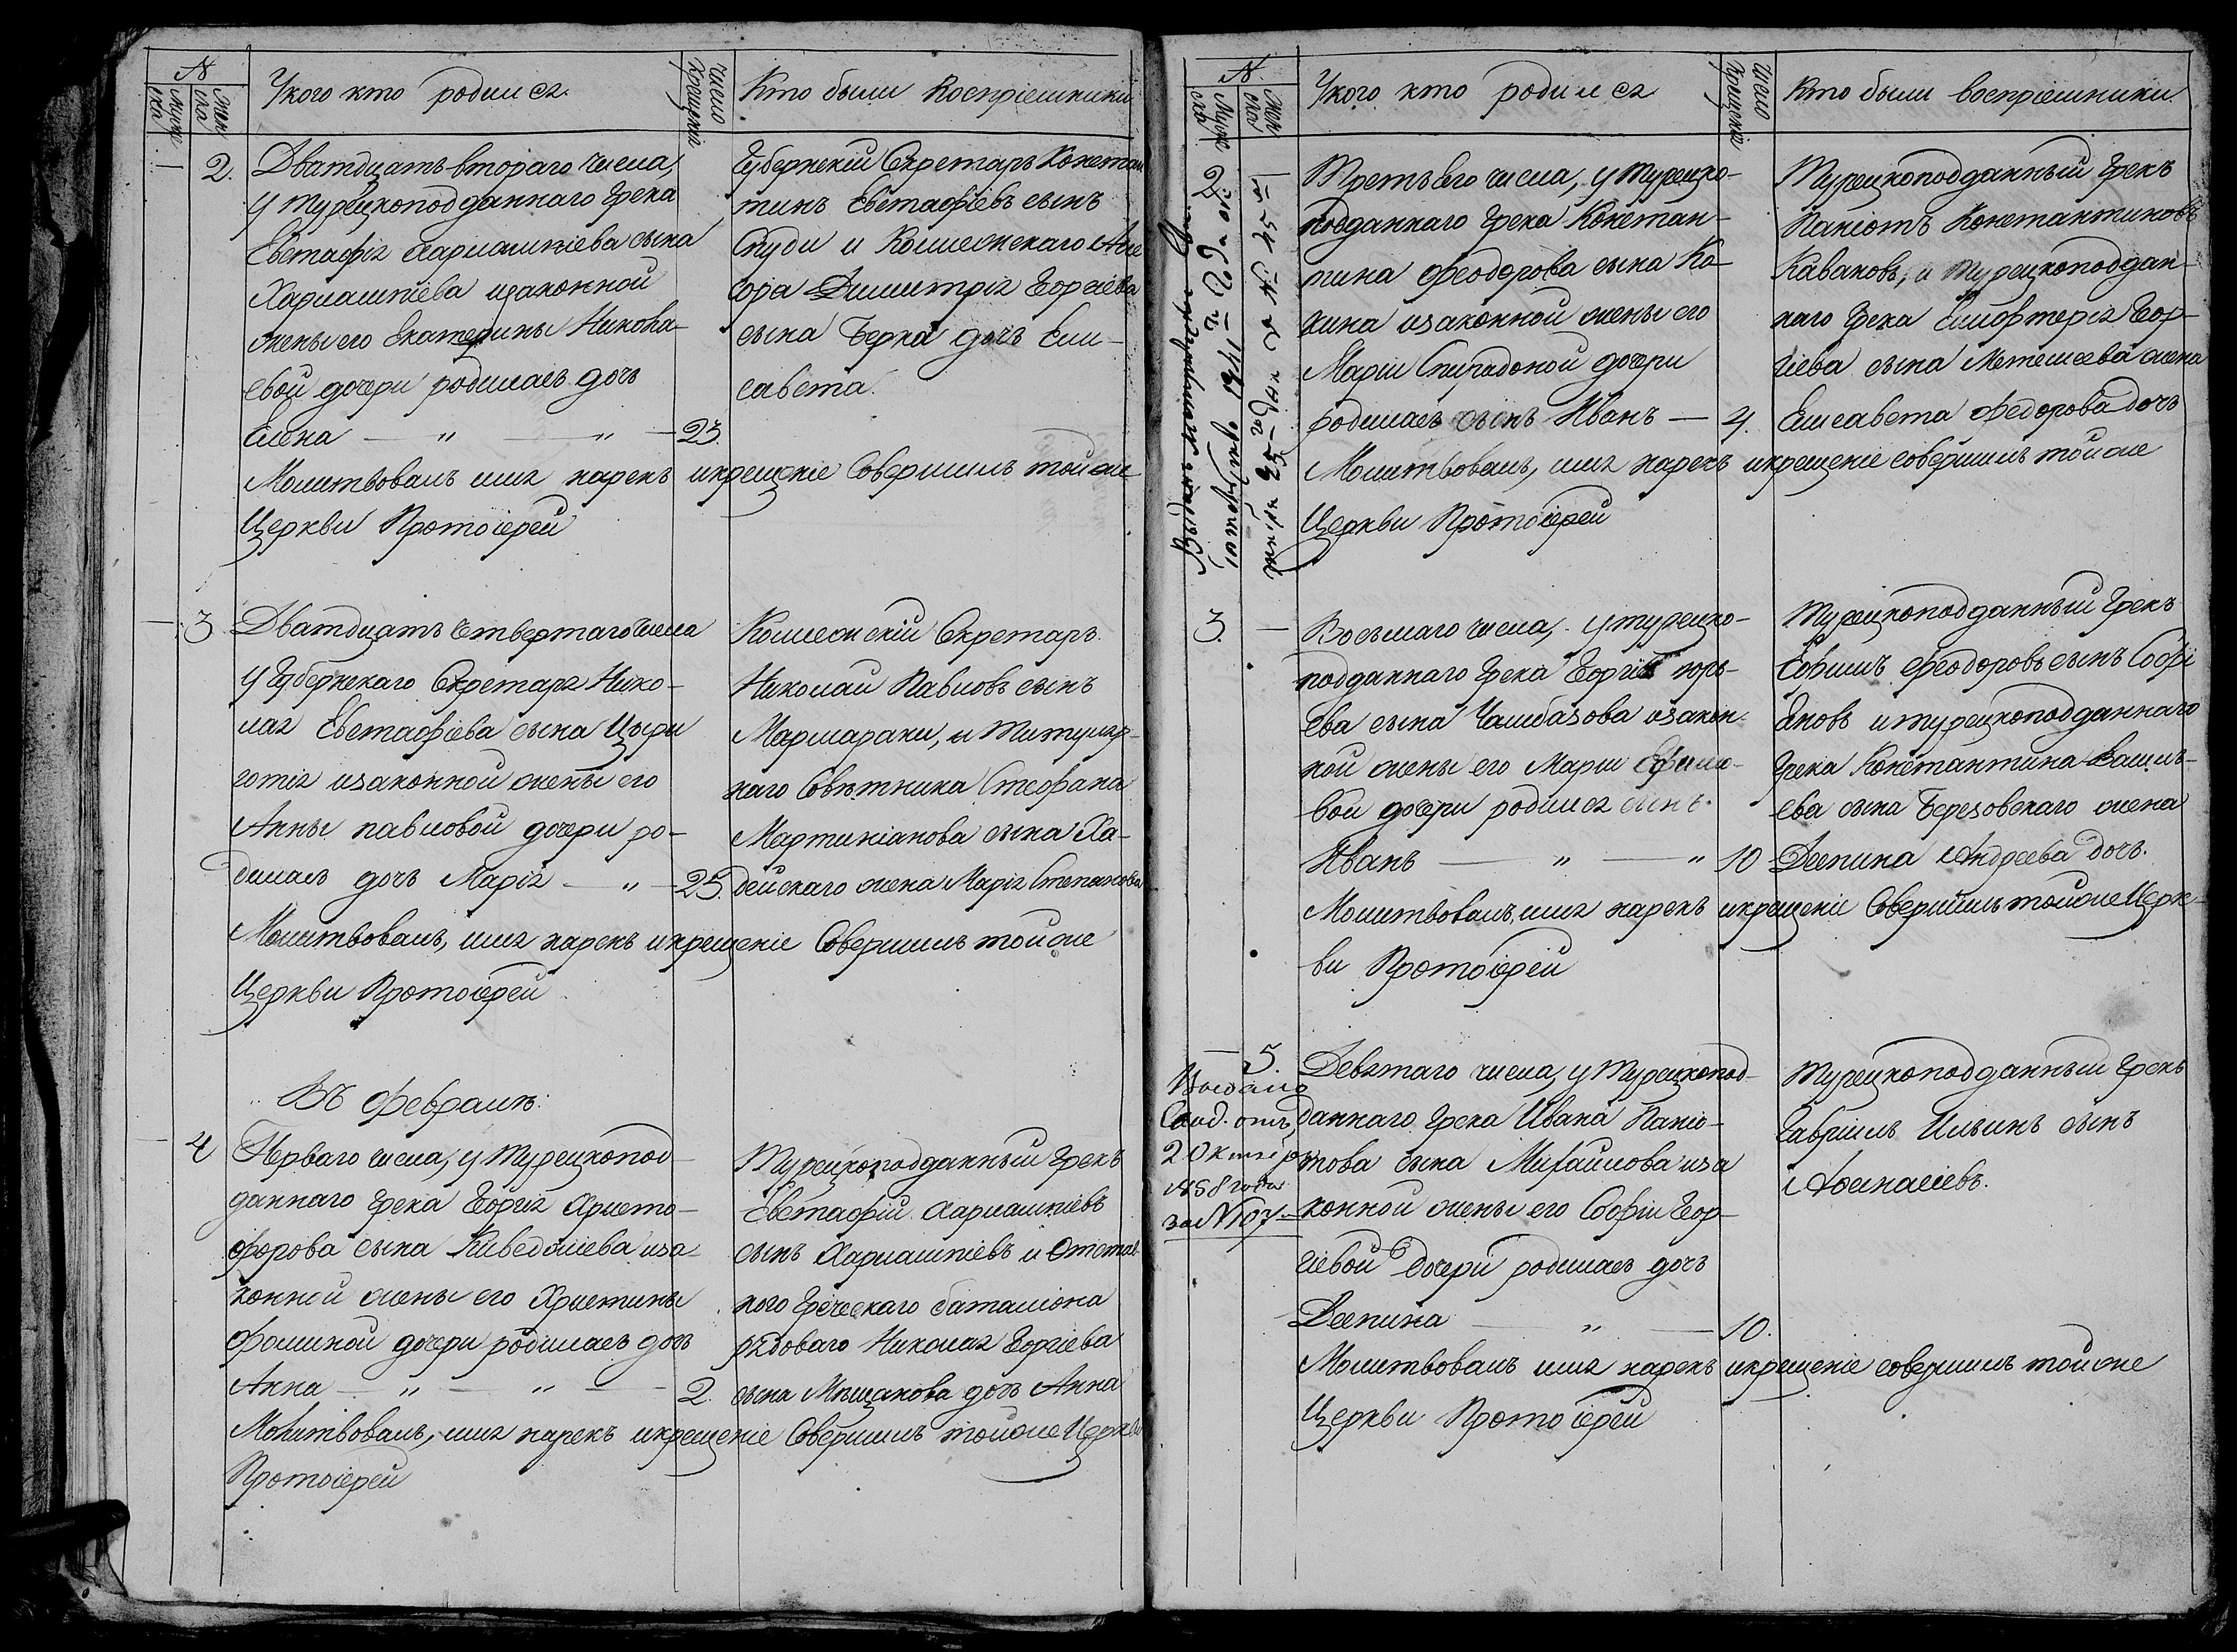 N
Муже
ска
Жен
ска
У кого кто родился
Число
Крещенія
Кто были Воспріемники
2.
Дватдцать втораго числа,
у турецкоподданнаго Грека
Евстафія Харлампіева сына
Харлампіева изаконной
жены его Екатерины Никола-
евой дочери родилась дочь
Елена — „ — „ — 23.
Губернскій Секретарь Констан
тинъ Евстафіевъ сынъ
Спуди и Коллежскаго Ассе
сора Димитрія Георгіева
сына Герка дочь Ели-
савета.
Молитвовалъ имя нарекъ икрещеніе Совершилъ тойже
Церкви Протоіерей
3
Дватдцать Четвертаго числа
у Губернскаго Секретаря Нико-
лая Евстафіева сына Цыри
готія изаконной жены его
Анны павловой дочери ро-
дилась дочь Марія — „ — 25.
Коллежскій Секретарь
Николай Павловъ сынъ
Мармараки, и Титуляр-
наго Совѣтника Стефана
Мартиніанова сына Ха-
дейскаго жена Марія Степанова
Молитвовалъ, имя нарекъ икрещеніе Совершилъ тойже
Церкви Протоіерей
Въ Февралѣ:
4
Перваго числа, у Турецкопод-
даннаго Грека Георгія Христо-
форова сына Киведжіева иза-
конной жены его Христины
Фоминой дочери родилась дочь
Анна — „ — „ — 2.
Турецкоподданный Грекъ
Евстафій Харлампіевъ
сынъ Харлампіевъ и Отстав
ного Греческаго баталіона
рядоваго Николая Георгіева
сына Мѣщанова дочь Анна
Молитвовалъ, имя нарекъ икрещеніе Совершилъ тойже Церкви
Протоіерей
N.
Муже
ска
Жен
ска
У кого кто родился
Число
Крещенія
Кто были воспріемники.
2
Третьяго числа, у турецко-
подданнаго Грека Констан-
тина Феодорова сына Ко-
кина изаконной жены его
Маріи Спиридоной дочери
родилась сынъ Иванъ — 4.
Турецкоподданный Грекъ
Паніотъ Константиновъ
Каваковъ, и турецкоподдан-
наго Грека Елифтерія Геор-
гіева сына Метелеева жена
Елисавета Федорова дочь
Молитвовалъ, имя нарекъ икрещеніе совершилъ тойже
Церкви Протоіерей
3.
Восьмаго числа, у турецко-
подданнаго Грека Георгія юрь-
ева сына Чамбазова изакон-
ной жены его Маріи Ефимо-
вой дочери родился сынъ
Иванъ — „ — „ 10
Турецкоподданный Грекъ
Ефимъ Феодоровъ сынъ Софі
яновъ и турецкоподданнаго
Грека Константина Василь-
ева сына Березовскаго жена
Деспина Андреева дочь.
Молитвовалъ, имя нарекъ икрещеніе Совершилъ тойже Церк-
ви Протоіерей
5.
Выдано
Свид. отъ
2 Октября
1858 года
за N 107
Девятаго числа, у Турецкопод-
даннаго Грека Ивана Паніо-
това сына Михайлова иза
конной жены его Софіи Геор-
гіевой дочери родилась дочь
Деспина — „ — 10.
Турецкоподданный Грекъ
Гавріилъ Ильинъ сынъ
Афанасіевъ.
Молитвовалъ имя нарекъ икрещеніе совершилъ тойже
Церкви Протоіерей